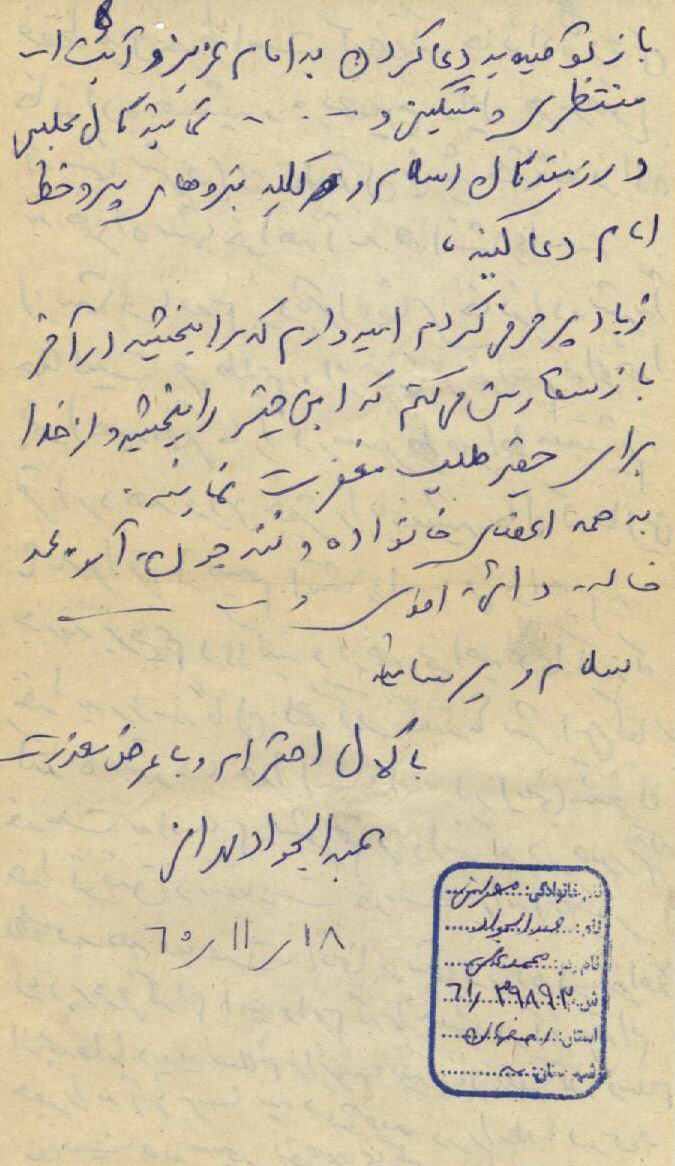 باز توصیه به دعا کردن به امام عزیز و آیت ا...
منتظری و مشکینی و ... نمایندگان مجلس
و رزمندگان اسلام و کلیه نیروهای پیرو خط
امام دعا کنید،
زیاد پر حرفی کردم امیدوارم که مرا ببخشید در آخر
باز سفارش می کنم که این حقیر را ببخشید و از خدا
برای حقیر طلب مغفرت نمایند.
به همه اعضای خانواده و ننه جون،
خاله
سلام و برسانید
با کمال احترام و با عرض معذرت
عبدالجواد مهرانی
۱۸ ر ۱۱ ر ۶۰
نام خانوادگی:
نام: عبدالجواد
نام پدر: محمدعلی
ش ۳۹۸۹۰۲ ر ۶۱
استان: اصفهان
شهرستان: